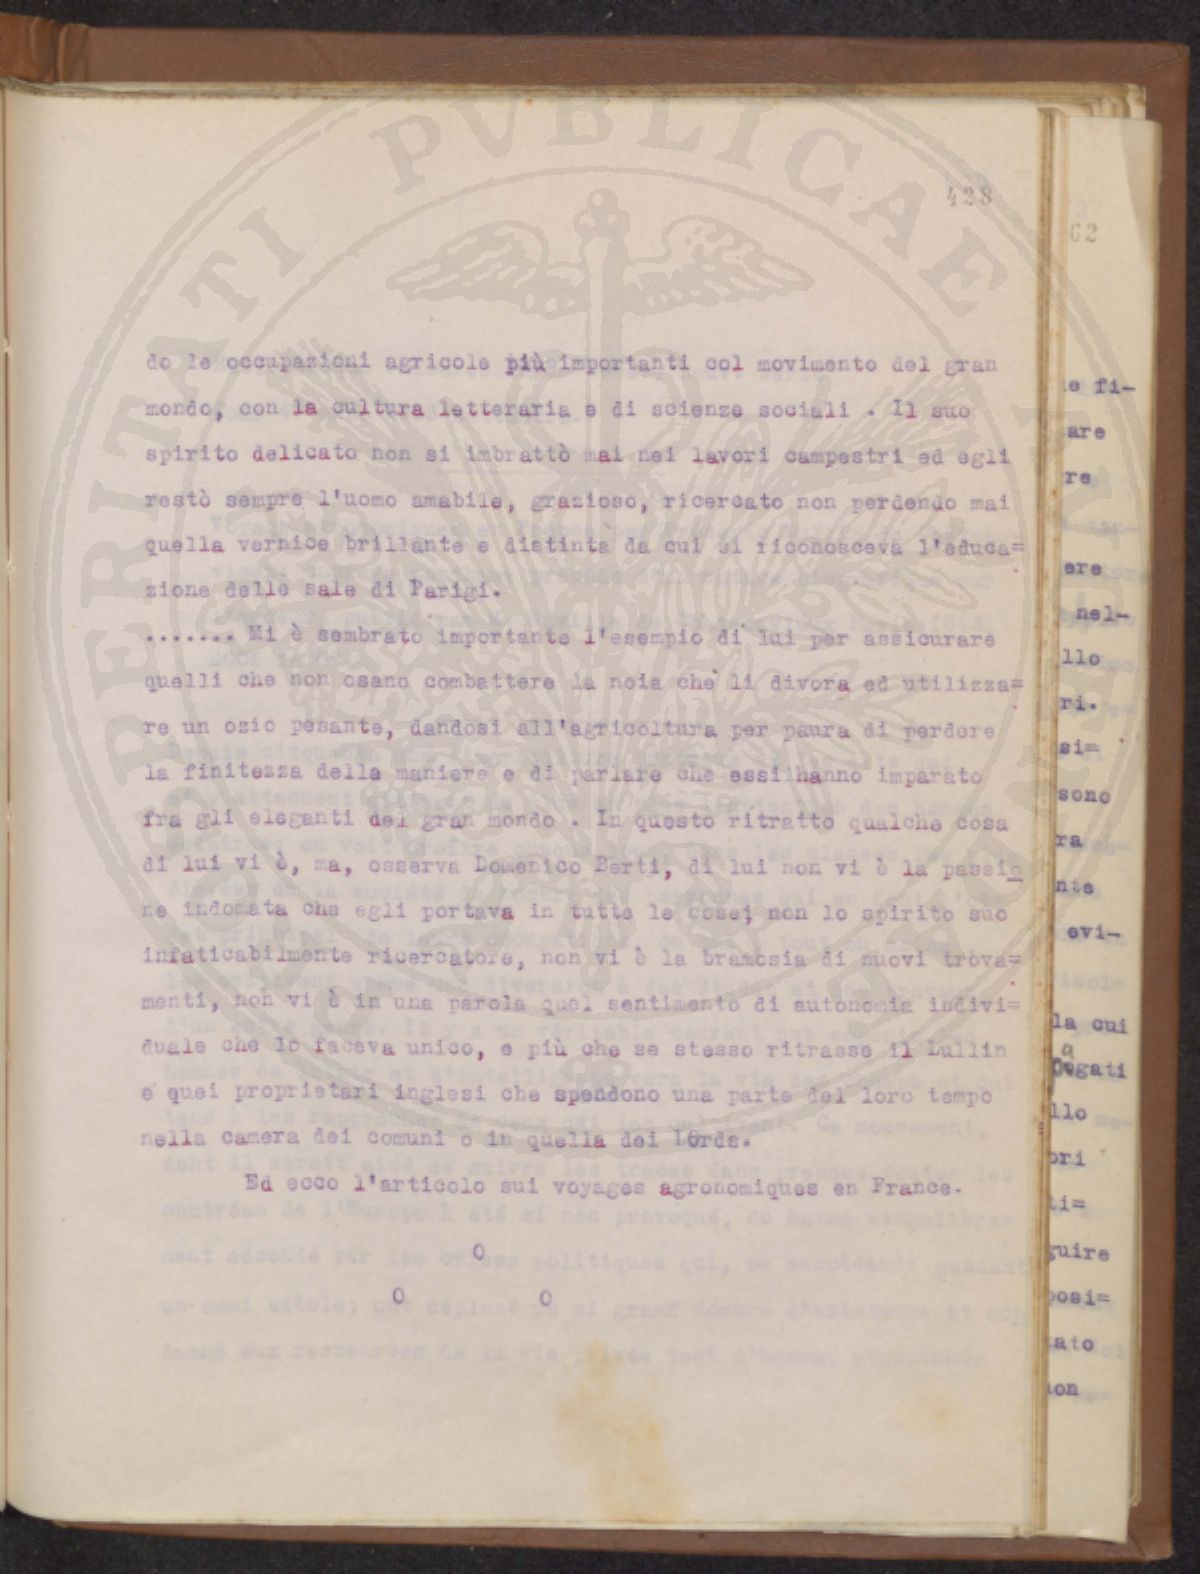 428
do le occupazioni agricole più importanti col movimento del gran
mondo, con la cultura letteraria e di scienze sociali . Il suo
spirito delicato non si imbrattò mai nei lavori campestri ed egli
restò sempre l'uomo amabile, grazioso, ricercato non perdendo mai
quella vernice brillante e distinta da cui si riconosceva l'educa=
zione delle sale di Parigi.
....... Mi è sembrato importante l'esempio di lui per assicurare
quelli che non osano combattere la noia che li divora ed utilizza=
re un ozio pesante, dandosi all'agricoltura per paura di perdere
la finitezza delle maniere e di parlare che essiihanno imparato
fra gli eleganti del gran mondo . In questo ritratto qualche cosa
di lui vi è, ma, osserva Domenico Berti, di lui non vi è la passio
ne indomata che egli portava in tutte le cose; non lo spirito suo
infaticabilmente ricercatore, non vi è la bramosia di nuovi trova=
menti, non vi è in una parola quel sentimento di autonomia indivi=
duale che lo faceva unico, e più che se stesso ritrasse il Lullin
e quei proprietari inglesi che spendono una parte del loro tempo
nella camera dei comuni o in quella dei Lords.
Ed ecco l'articolo sui voyages agronomiques en France.
O
O O
62
le fi-
are
re
ere
nel-
llo
ri.
si=
sono
ra
nte
evi-
la cui
gati
llo
ori
ti=
guire
posi=
tato
non
PROSPERITATI PVBLICAE AVGENDAE